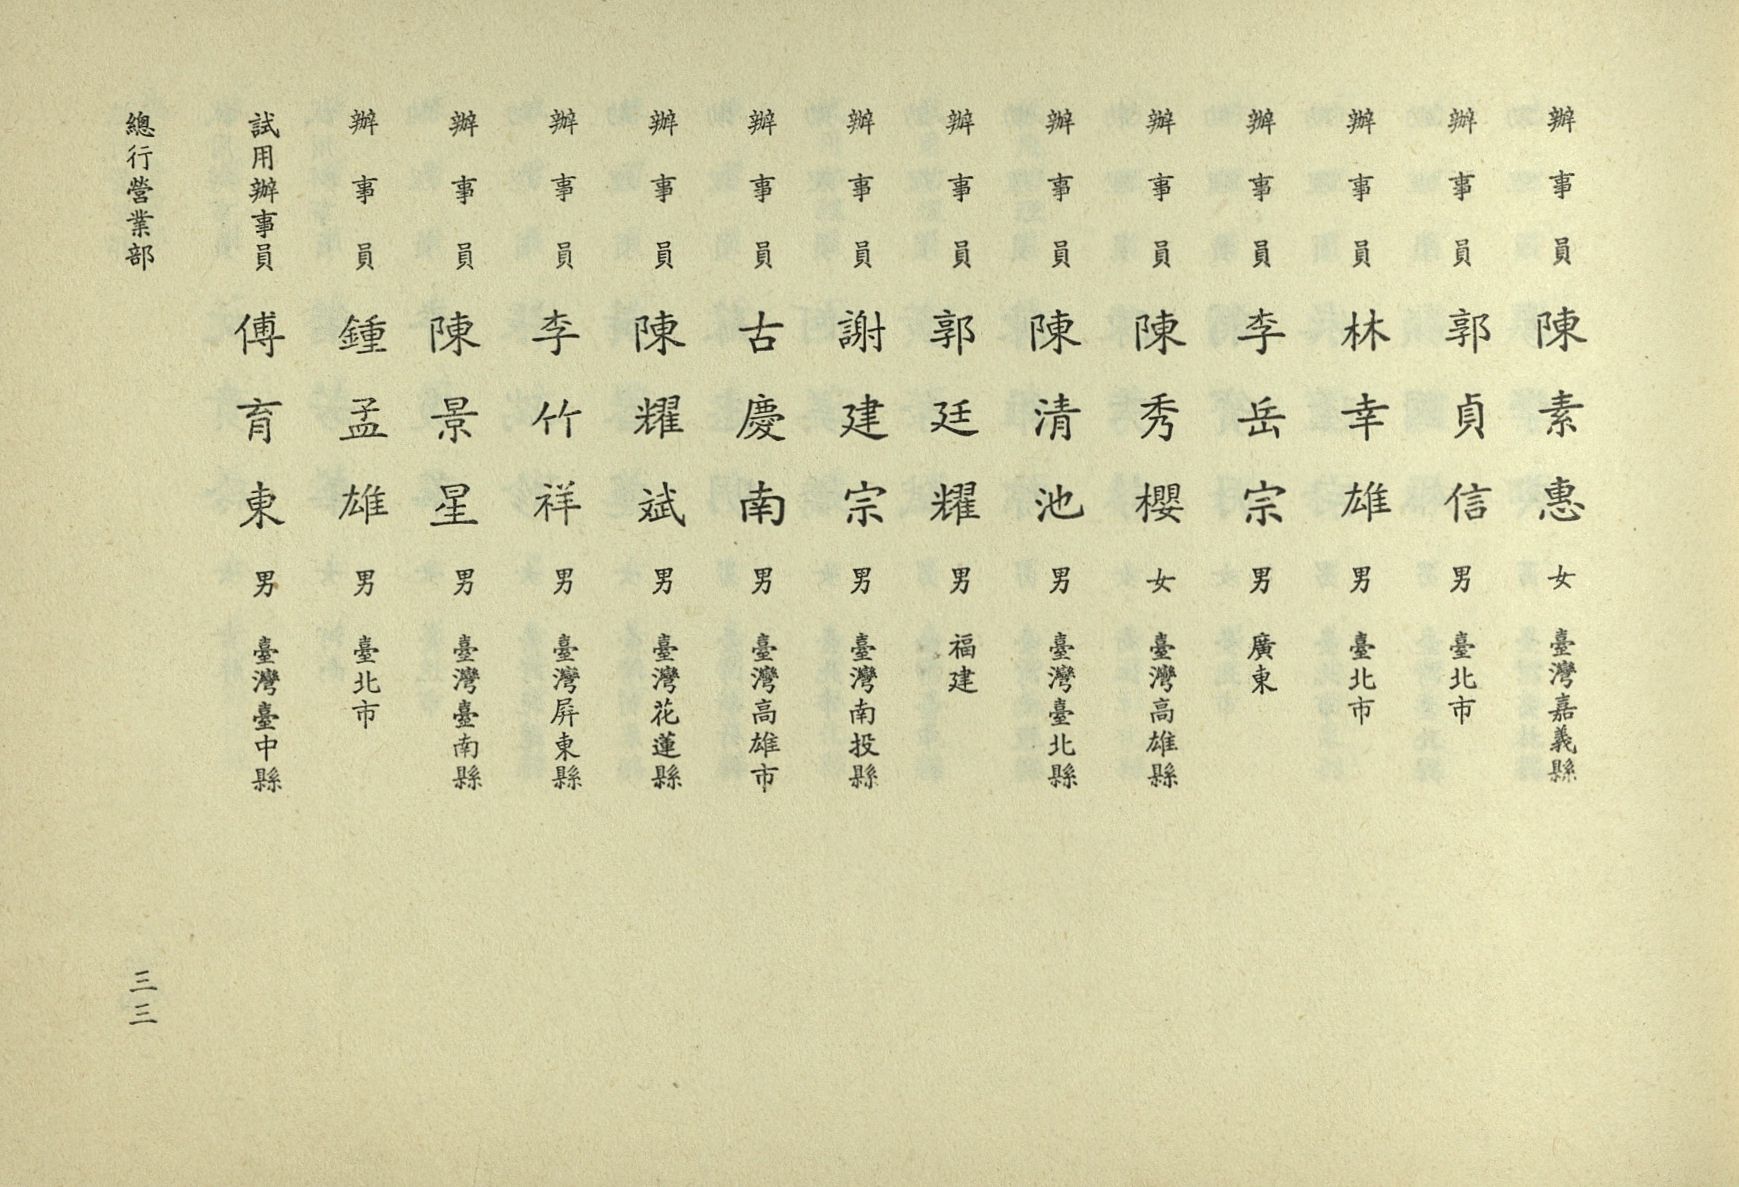 辦事員 陳素惠 女 臺灣嘉義縣
辦事員 郭貞信 男 臺北市
辦事員 林幸雄 男 臺北市
辦事員 李岳宗 男 廣東
辦事員 陳秀櫻 女 臺灣高雄縣
辦事員 陳清池 男 臺灣臺北縣
辦事員 郭廷耀 男 福建
辦事員 謝建宗 男 臺灣南投縣
辦事員 古慶南 男 臺灣高雄市
辦事員 陳耀斌 男 臺灣花蓮縣
辦事員 李竹祥 男 臺灣屏東縣
辦事員 陳景星 男 臺灣臺南縣
辦事員 鍾孟雄 男 臺北市
試用辦事員 傅育東 男 臺灣臺中縣
總行營業部
三三